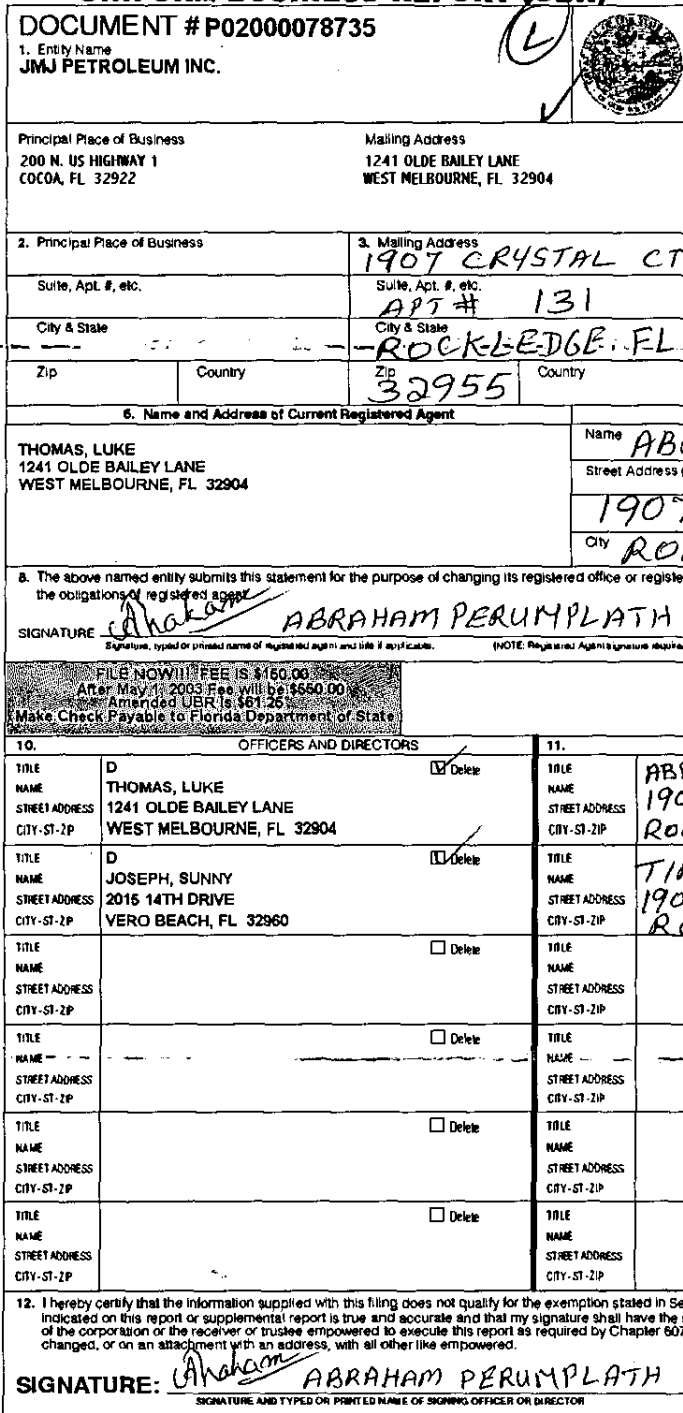 DOCUMENT # P02000078735
1. Entity Name
JMJ PETROLEUM INC.
Principal Place of Business
200 N. US HIGHWAY 1
COCOA, FL 32922
Mailing Address
1241 OLDE BAILEY LANE
WEST MELBOURNE, FL 32904
2. Principal Place of Business
3. Mailing Address
1907 CRYSTAL CT
Suite, Apt. #, etc.
Suite, Apt. #, etc.
APT # 131
City & State
City & State
ROCKLEDGE, FL
Zip Country
Zip Country
32955
6. Name and Address of Current Registered Agent
THOMAS, LUKE
1241 OLDE BAILEY LANE
WEST MELBOURNE, FL 32904
Name
Street Address
1907
City
8. The above named entity submits this statement for the purpose of changing its registered office or registe
the obligations of registered agent.
SIGNATURE Abraham ABRAHAM PERUMPLATH
Signature, typed or printed name of registered agent and title if applicable. (NOTE: Registered Agent signature require
FILE NOW!!! FEE IS $150.00
After May 1, 2003 Fee will be $550.00
Amended UBR is $61.25
Make Check Payable to Florida Department of State
10. OFFICERS AND DIRECTORS 11.
TITLE D Delete
NAME THOMAS, LUKE
STREET ADDRESS 1241 OLDE BAILEY LANE
CITY-ST-ZIP WEST MELBOURNE, FL 32904
TITLE
NAME
STREET ADDRESS
CITY-ST-ZIP
TITLE D Delete
NAME JOSEPH, SUNNY
STREET ADDRESS 2015 14TH DRIVE
CITY-ST-ZIP VERO BEACH, FL 32960
TITLE
NAME
STREET ADDRESS
CITY-ST-ZIP
TITLE Delete
NAME
STREET ADDRESS
CITY-ST-ZIP
TITLE
NAME
STREET ADDRESS
CITY-ST-ZIP
TITLE Delete
NAME
STREET ADDRESS
CITY-ST-ZIP
TITLE
NAME
STREET ADDRESS
CITY-ST-ZIP
TITLE Delete
NAME
STREET ADDRESS
CITY-ST-ZIP
TITLE
NAME
STREET ADDRESS
CITY-ST-ZIP
TITLE Delete
NAME
STREET ADDRESS
CITY-ST-ZIP
TITLE
NAME
STREET ADDRESS
CITY-ST-ZIP
12. I hereby certify that the information supplied with this filing does not qualify for the exemption stated in Se
indicated on this report or supplemental report is true and accurate and that my signature shall have the
of the corporation or the receiver or trustee empowered to execute this report as required by Chapter 607
changed, or on an attachment with an address, with all other like empowered.
SIGNATURE: Abraham ABRAHAM PERUMPLATH
SIGNATURE AND TYPED OR PRINTED NAME OF SIGNING OFFICER OR DIRECTOR